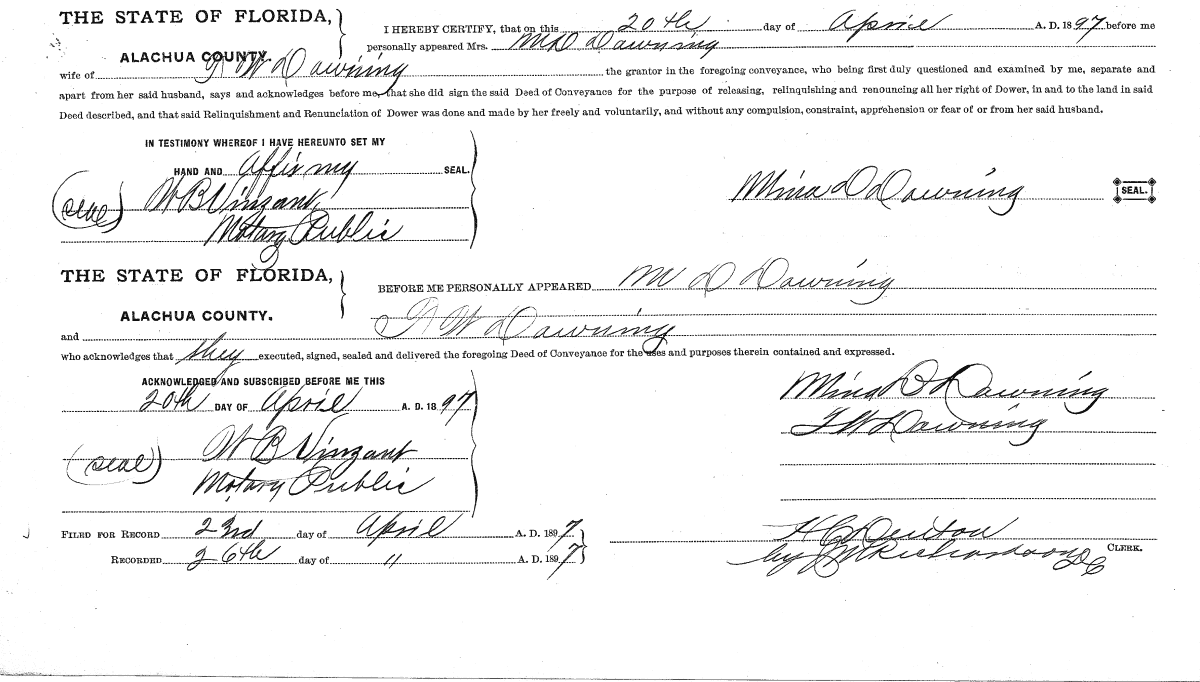 THE STATE OF FLORIDA,
ALACHUA COUNTY.
I HEREBY CERTIFY, that on this 20th day of April A. D. 1897 before me
personally appeared Mrs. M D Dawning
wife of W Dawning the grantor in the foregoing conveyance, who being first duly questioned and examined by me, separate and
apart from her said husband, says and acknowledges before me, that she did sign the said Deed of Conveyance for the purpose of releasing, relinquishing and renouncing all her right of Dower, in and to the land in said
Deed described, and that said Relinquishment and Renunciation of Dower was done and made by her freely and voluntarily, and without any compulsion, constraint, apprehension or fear of or from her said husband.
IN TESTIMONY WHEREOF I HAVE HEREUNTO SET MY
HAND AND Affix my SEAL.
(seal) W B Vinzant
Notary Public
Mina D Dawning SEAL.
THE STATE OF FLORIDA,
ALACHUA COUNTY.
BEFORE ME PERSONALLY APPEARED M D Dawning
and W Dawning
who acknowledges that they executed, signed, sealed and delivered the foregoing Deed of Conveyance for the uses and purposes therein contained and expressed.
ACKNOWLEDGED AND SUBSCRIBED BEFORE ME THIS
20th DAY OF April A. D. 1897
(seal) W B Vinzant
Notary Public
Mina D Dawning
W Dawning
FILED FOR RECORD 23rd day of April A. D. 1897
RECORDED 26th day of " A. D. 1897
H C Denton
by J M Richardson D C CLERK.